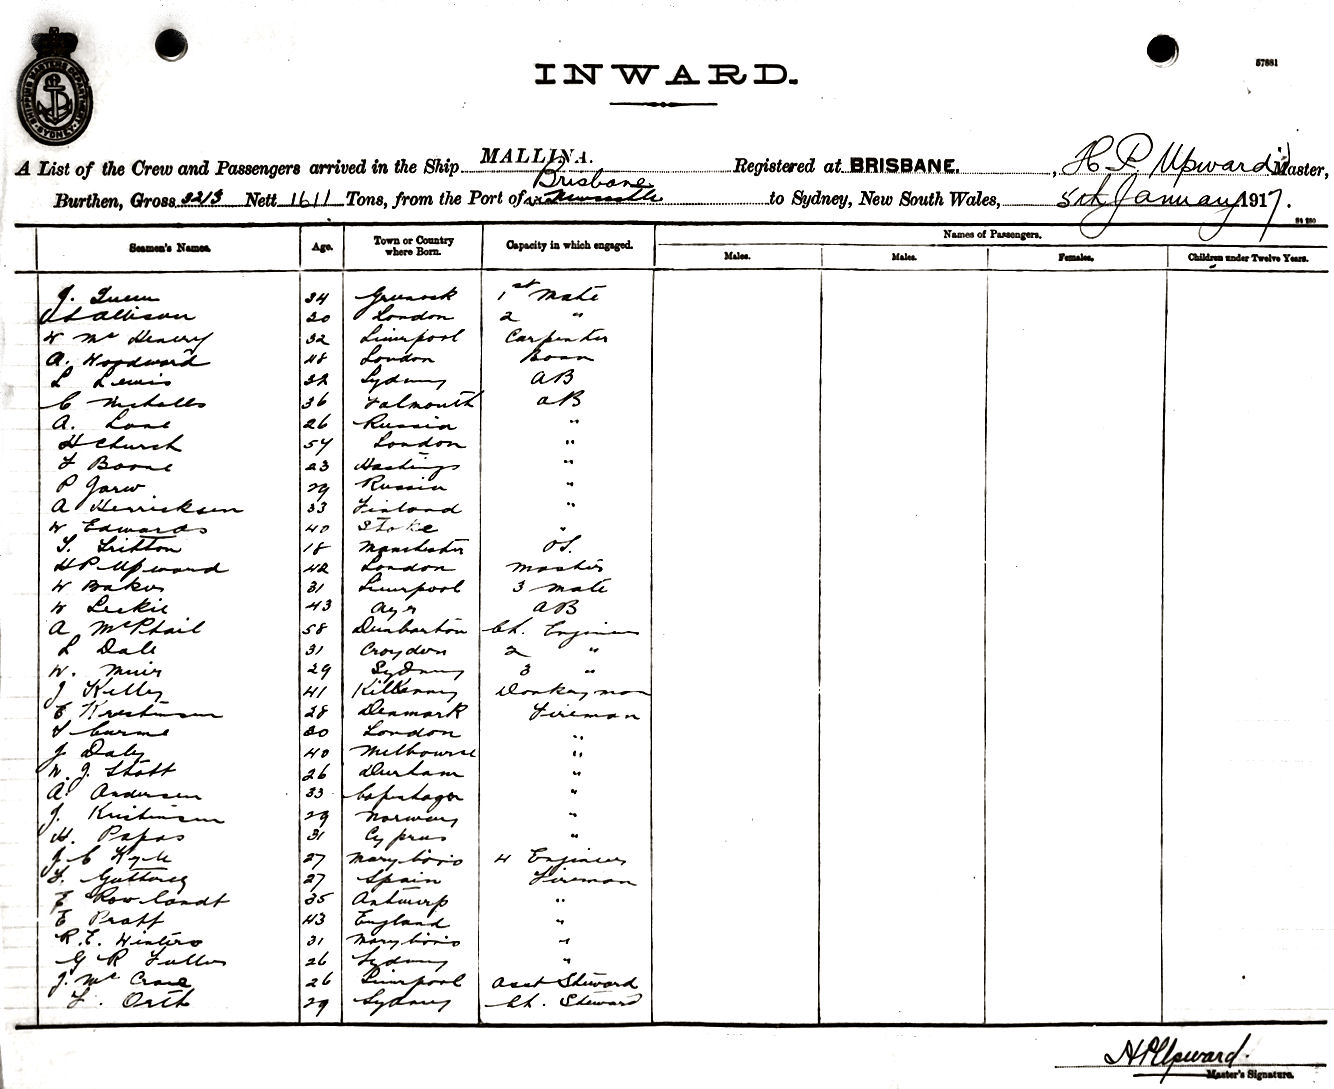 SHIPPING MASTERS DEPARTMENT
SYDNEY
57881
INWARD.
A List of the Crew and Passengers arrived in the Ship MALLINA. Registered at BRISBANE. , H P Upward Master,
Brisbane
Burthen, Gross 3213 Nett 1611 Tons, from the Port of via Newcastle to Sydney, New South Wales, 5th January 1917.
Seamen's Names. Age. Town or Country where Born. Capacity in which engaged. Names of Passengers.
Males. Males. Females. Children under Twelve Years.
J. 34 Greenock 1st Mate
Allison 30 London 2 "
W Mc Henery 32 Liverpool Carpenter
A. Woodward 48 London Bosn
L Lewis 32 Sydney AB
C Nicholls 36 Falmouth AB
A. Lone 26 Russia "
H Church 54 London "
F Boone 23 Hastings "
P 29 Russia "
A Henricksen 33 Finland "
W Edwards 40 Stoke "
S. Tritton 18 Manchester OS.
H P Upward 42 London Master
W Baker 31 Liverpool 3 Mate
W Leckie 43 Ayr AB
A McPhail 58 Dunbarton Ch. Engineer
L Dale 31 Croydon 2 "
W. Muir 29 Sydney 3 "
J Kelly 41 Kilkenny Donkeyman
E Kristinsen 28 Denmark Fireman
30 London "
J Daly 40 Melbourne "
W. J. Stott 26 Durham "
A. Andersen 33 Copenhagen "
J. Kristinsen 29 Norway "
H. Papas 31 Cyprus "
J C Kyle 27 Maryboro 4 Engineer
F. 27 Spain Fireman
E Rowlandt 35 Antwerp "
E Pratt 43 England "
R. E. Winters 31 Maryboro "
G R Fuller 26 Sydney "
J. Mc Crae 26 Liverpool Asst Steward
F. Orth 29 Sydney Ch. Steward
H P Upward.
Master's Signature.